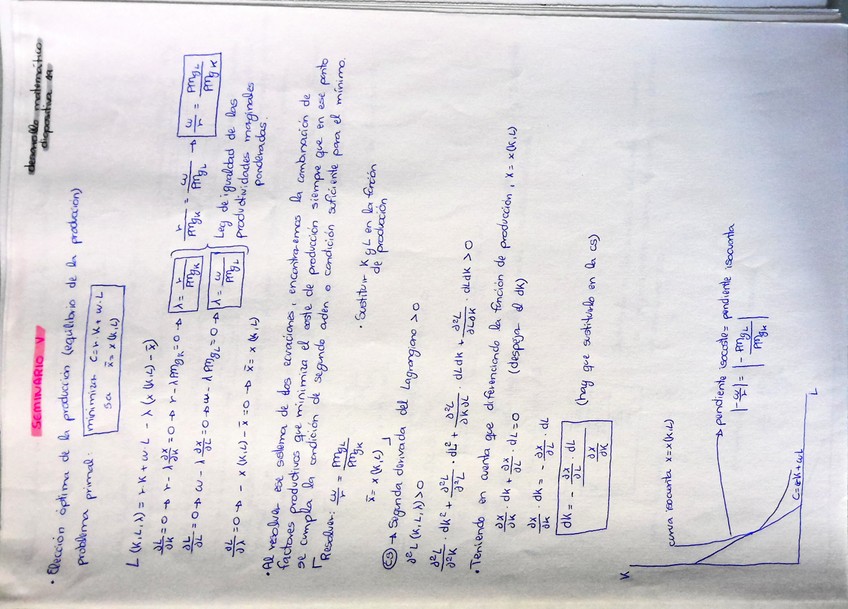 desarrollo matemático
diapositiva 19
SEMINARIO V
· Elección óptima de la producción (equilibrio de la producción)
problema primal: minimizar C=r·K+w·L
s.a x̄=x(K,L)
L(K,L,λ)=rK+wL-λ(x(K,L)-x̄)
∂L/∂K=0→r-λ ∂x/∂K=0→r-λPMgK=0→ λ=r/PMgK
∂L/∂L=0→w-λ ∂x/∂L=0→w-λPMgL=0→ λ=w/PMgL
r/PMgK = w/PMgL → w/r = PMgL/PMgK
Ley de igualdad de las
productividades marginales
ponderadas.
∂L/∂λ=0→-x(K,L)-x̄=0→x̄=x(K,L)
· Al resolver ese sistema de dos ecuaciones, encontraremos la combinación de
factores productivos que minimiza el coste de producción siempre que en ese punto
se cumpla la condición de segundo orden o condición suficiente para el mínimo.
Resolver: w/r = PMgL/PMgK
x̄=x(K,L)
· Sustituir K y L en la función
de producción
CS → Segunda derivada del Lagrangiano >0
∂²L(K,L,λ)>0
∂²L/∂²K · dK² + ∂²L/∂²L · dL² + ∂²L/∂K∂L · dLdK + ∂²L/∂L∂K · dLdK >0
· Teniendo en cuenta que diferenciando la función de producción, x=x(K,L)
∂x/∂K · dK + ∂x/∂L · dL=0 (despejar el dK)
∂x/∂K · dK = - ∂x/∂L · dL
dK = - (∂x/∂L · dL)/(∂x/∂K) (hay que sustituirlo en la CS)
K
curva isocuanta x=x(K,L)
→ pendiente isocoste = pendiente isocuanta
|-w/r| = |-PMgL/PMgK|
C=rK+wL
L